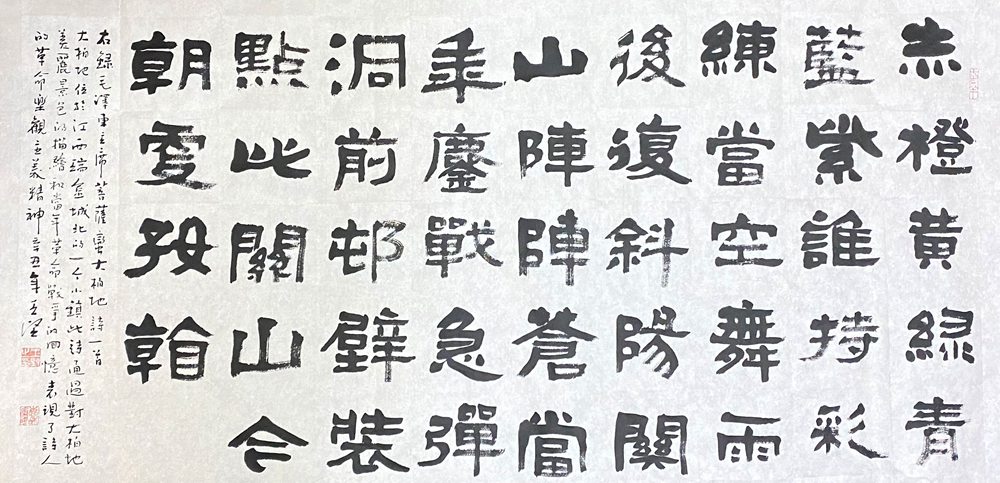 赤橙黄綠青
藍紫誰持彩
練當空舞雨
後復斜陽關
山陣陣蒼當
年鏖戰急彈
洞前邨壁裝
點此關山今
朝更好看
右錄毛澤東主席菩薩蠻大柏地詩一首
大柏地位於江西瑞金城北的一个小鎮此詩通過對大柏地
美麗景色的描繪和當年革命戰爭的回憶表現了詩人
的革命樂觀主義精神辛丑年